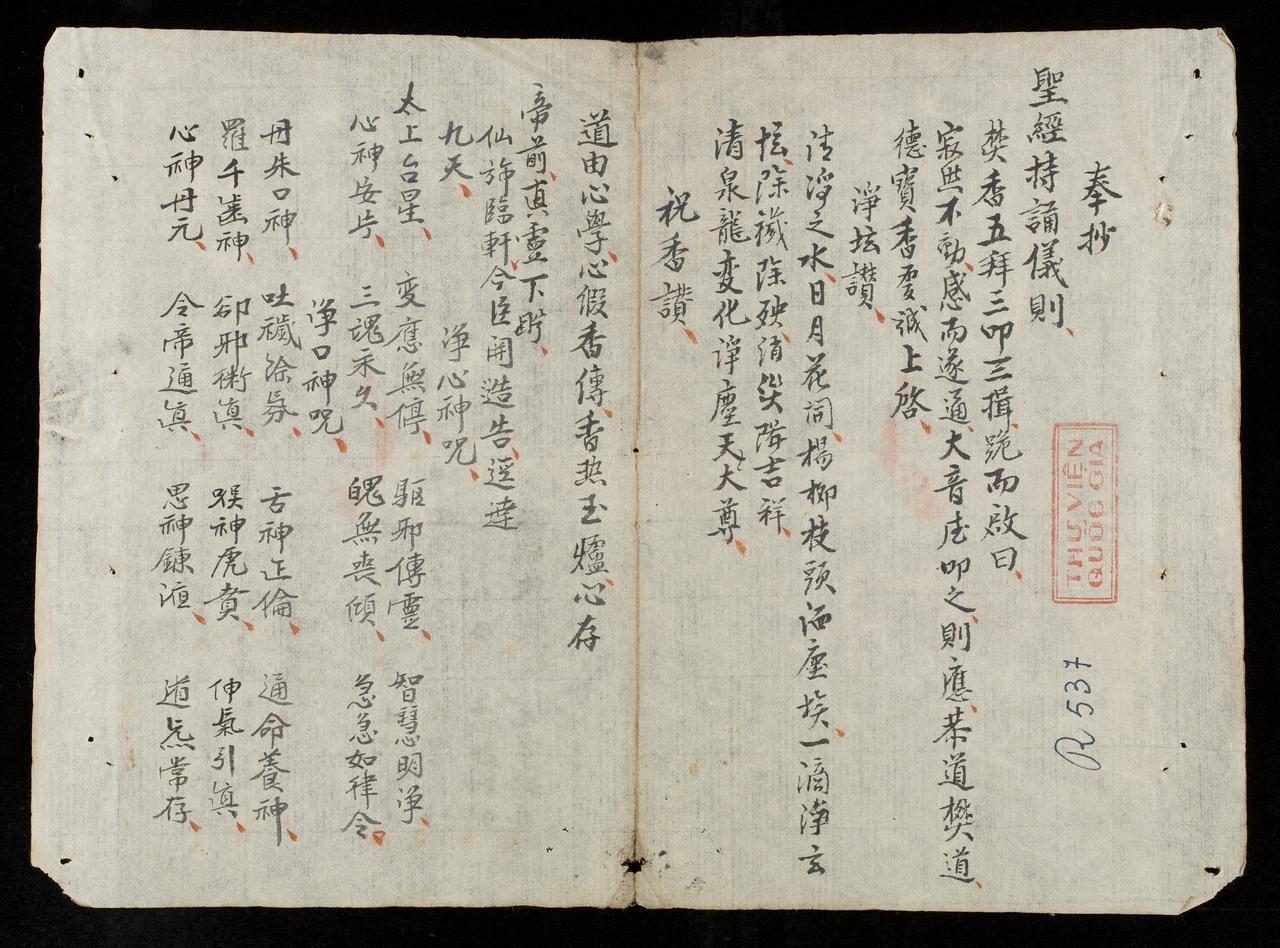 奉抄
聖經持誦儀則、
焚香五拜三叩三揖、跪而啟曰、
寂然不動、感而遂通、大音希叩之、則應、恭道樊道、
德寶香、虔誠上啓、
淨坛讃、
清淨之水、日月花同、楊柳枝頭洒塵埃、一滴淨玄
坛、除穢除殃、消災降吉祥、
清泉龍变化淨塵天大尊、
祝香讃、
道由心學、心假香傳、香热玉爐、心存
帝前、真靈下盻、
仙斾臨軒、令臣開造告、逕達
九天、
淨心神咒、
太上台星、变應無停、驅邪傳靈、智慧明淨、
心神安片、三魂永久、魄無喪傾、急急如律令。
淨口神咒、
丹朱口神、吐穢除氛、舌神正倫、通命養神、
羅千齒神、卻邪衛真、喉神虎賁、伸氣引真、
心神丹元、令帝通真、思神鍊洍、道炁常存、
THƯ VIỆN
QUỐC GIA
R 537